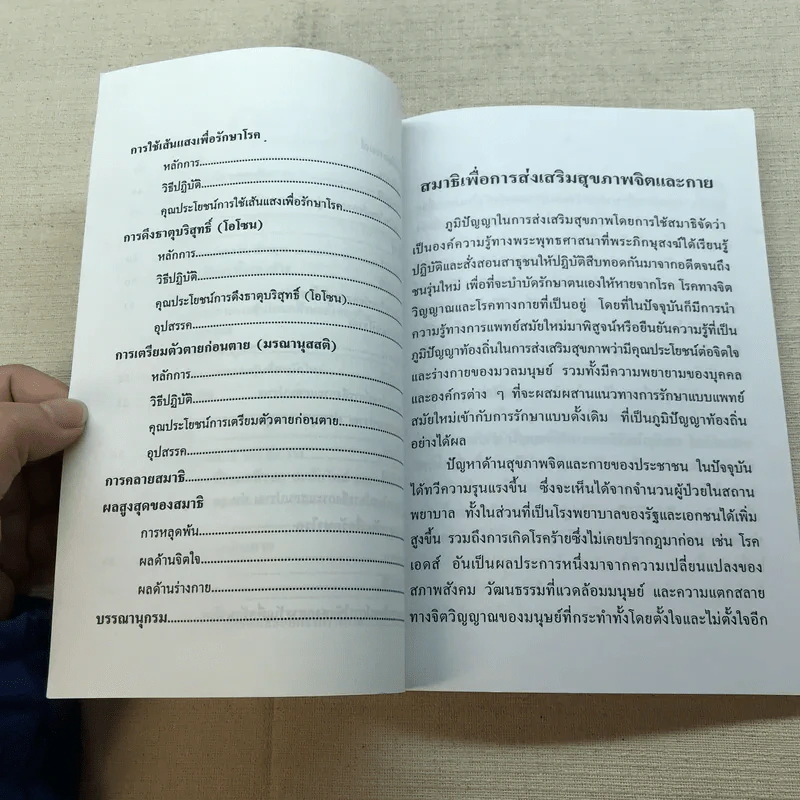 การใช้เส้นแสงเพื่อรักษาโรค
หลักการ
วิธีปฏิบัติ
คุณประโยชน์การใช้เส้นแสงเพื่อรักษาโรค
การดึงธาตุบริสุทธิ์ (โอโซน)
หลักการ
วิธีปฏิบัติ
คุณประโยชน์การดึงธาตุบริสุทธิ์ (โอโซน)
อุปสรรค
การเตรียมตัวตายก่อนตาย (มรณานุสสติ)
หลักการ
วิธีปฏิบัติ
คุณประโยชน์การเตรียมตัวตายก่อนตาย
อุปสรรค
การคลายสมาธิ
ผลสูงสุดของสมาธิ
การหลุดพ้น
ผลด้านจิตใจ
ผลด้านร่างกาย
บรรณานุกรม
สมาธิเพื่อการส่งเสริมสุขภาพจิตและกาย
ภูมิปัญญาในการส่งเสริมสุขภาพโดยการใช้สมาธิจัดว่า
เป็นองค์ความรู้ทางพระพุทธศาสนาที่พระภิกษุสงฆ์ได้เรียนรู้
ปฏิบัติและสั่งสอนสาธุชนให้ปฏิบัติสืบทอดกันมาจากอดีตจนถึง
ชนรุ่นใหม่ เพื่อที่จะบำบัดรักษาตนเองให้หายจากโรค โรคทางจิต
วิญญาณและโรคทางกายที่เป็นอยู่ โดยที่ในปัจจุบันก็มีการนำ
ความรู้ทางการแพทย์สมัยใหม่มาพิสูจน์หรือยืนยันความรู้ที่เป็น
ภูมิปัญญาท้องถิ่นในการส่งเสริมสุขภาพว่ามีคุณประโยชน์ต่อจิตใจ
และร่างกายของมวลมนุษย์ รวมทั้งมีความพยายามของบุคคล
และองค์กรต่าง ๆ ที่จะผสมผสานแนวทางการรักษาแบบแพทย์
สมัยใหม่เข้ากับการรักษาแบบดั้งเดิม ที่เป็นภูมิปัญญาท้องถิ่น
อย่างได้ผล
ปัญหาด้านสุขภาพจิตและกายของประชาชน ในปัจจุบัน
ได้ทวีความรุนแรงขึ้น ซึ่งจะเห็นได้จากจำนวนผู้ป่วยในสถาน
พยาบาล ทั้งในส่วนที่เป็นโรงพยาบาลของรัฐและเอกชนได้เพิ่ม
สูงขึ้น รวมถึงการเกิดโรคร้ายซึ่งไม่เคยปรากฏมาก่อน เช่น โรค
เอดส์ อันเป็นผลประการหนึ่งมาจากความเปลี่ยนแปลงของ
สภาพสังคม วัฒนธรรมที่แวดล้อมมนุษย์ และความแตกสลาย
ทางจิตวิญญาณของมนุษย์ที่กระทำทั้งโดยตั้งใจและไม่ตั้งใจอีก